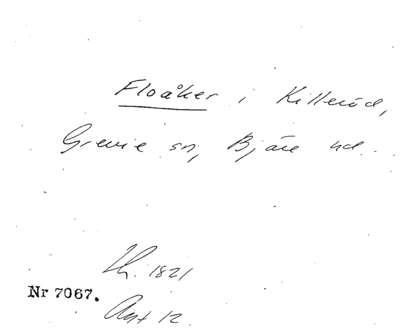 Floåker i Killeröd,
Grevie sn, Bjäre hd.
Lh. 1821
Nr 7067.
Akt 12.